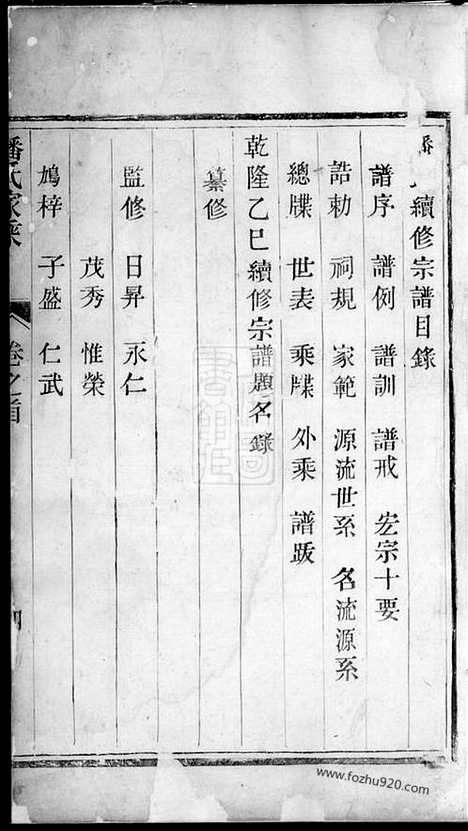 續修宗譜目錄
譜序 譜例 譜訓 譜戒 宏宗十要
誥勅 祠規 家範 源流世系 名流源系
總牒 世表 乘牒 外乘 譜跋
乾隆乙巳續修宗譜題名錄
纂修
監修 日昇 永仁
茂秀 惟榮
鳩梓 子盛 仁武
潘氏家乘 卷之首
www.fozhu920.com